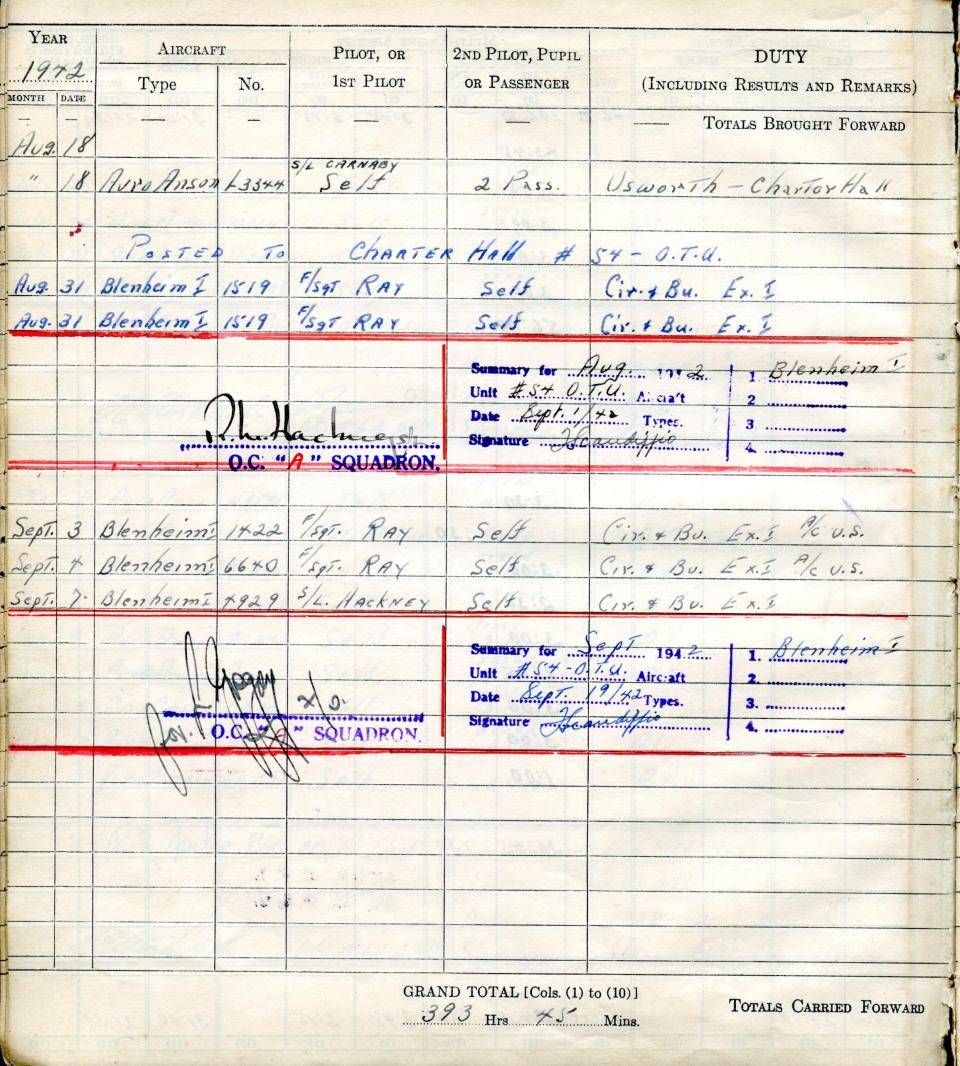 YEAR AIRCRAFT PILOT, OR 2ND PILOT, PUPIL DUTY
1942 Type No. 1ST PILOT OR PASSENGER (INCLUDING RESULTS AND REMARKS)
MONTH DATE
— — — — — — —— TOTALS BROUGHT FORWARD
Aug. 18
S/L CARNABY
" 18 Avro Anson L3344 Self 2 Pass. Usworth - Charter Hall
POSTED TO CHARTER Hall # 54 - O.T.U.
Aug. 31 Blenheim I 1519 F/Sgt RAY Self Cir. & Bu. Ex. I
Aug. 31 Blenheim I 1519 F/Sgt RAY Self Cir. & Bu. Ex. I
Summary for Aug. 1942 1. Blenheim I
Unit #54 O.T.U. Aircraft 2
Date Sept. 1/42 Types. 3
Signature 4.
O.C. "A" SQUADRON.
Sept. 3 Blenheim I 1422 F/Sgt. RAY Self Cir. & Bu. Ex. I A/c U.S.
Sept. 4 Blenheim I 6640 F/Sgt. RAY Self Cir. & Bu. Ex. I A/c U.S.
Sept. 7 Blenheim I 4929 S/L. HACKNEY Self Cir. & Bu. Ex. I
Summary for Sept 1942 1. Blenheim I
Unit #54-O.T.U. Aircraft 2.
Date Sept. 19/42 Types. 3.
Signature 4.
for
O.C. "A" SQUADRON.
GRAND TOTAL [Cols. (1) to (10)]
393 Hrs 45 Mins. TOTALS CARRIED FORWARD